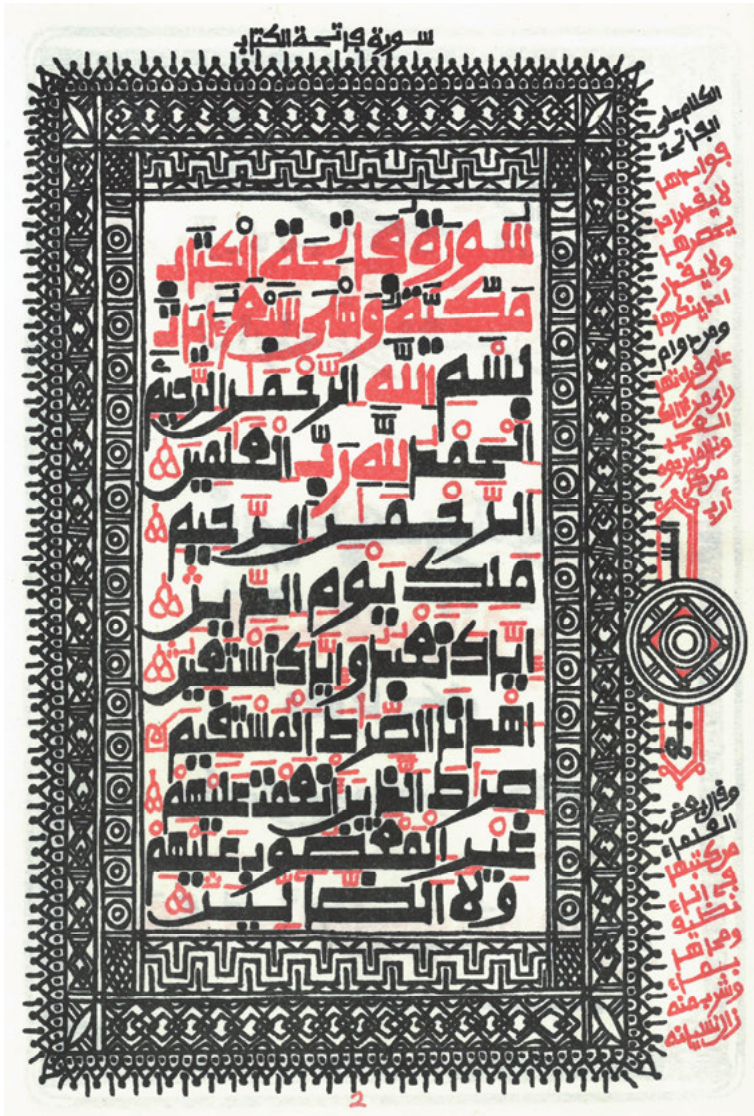 سورة فاتحة الكتاب
سورة فاتحة الكتاب
مكية وهي سبع ايات
بسم الله الرحمن الرحيم
الحمد لله رب العلمين
الرحمن الرحيم
ملك يوم الدين
اياك نعبد واياك نستعين
اهدنا الصرط المستقيم
صرط الذين انعمت عليهم
غير المغضوب عليهم
ولا الضالين
الكلام على
الفاتحة
فوائدها
لا يقدر احد
يحصرها
ولا يقدر
احد ينكرها
ومن داوم
على قراءتها
راى من ذلك
العجب
ونال ما يرجوه
من كل
أرب
وقال بعض
العلماء
من كتبها
في اناء
ومحاها
بماء
وشرب منه
زال نسيانه
2